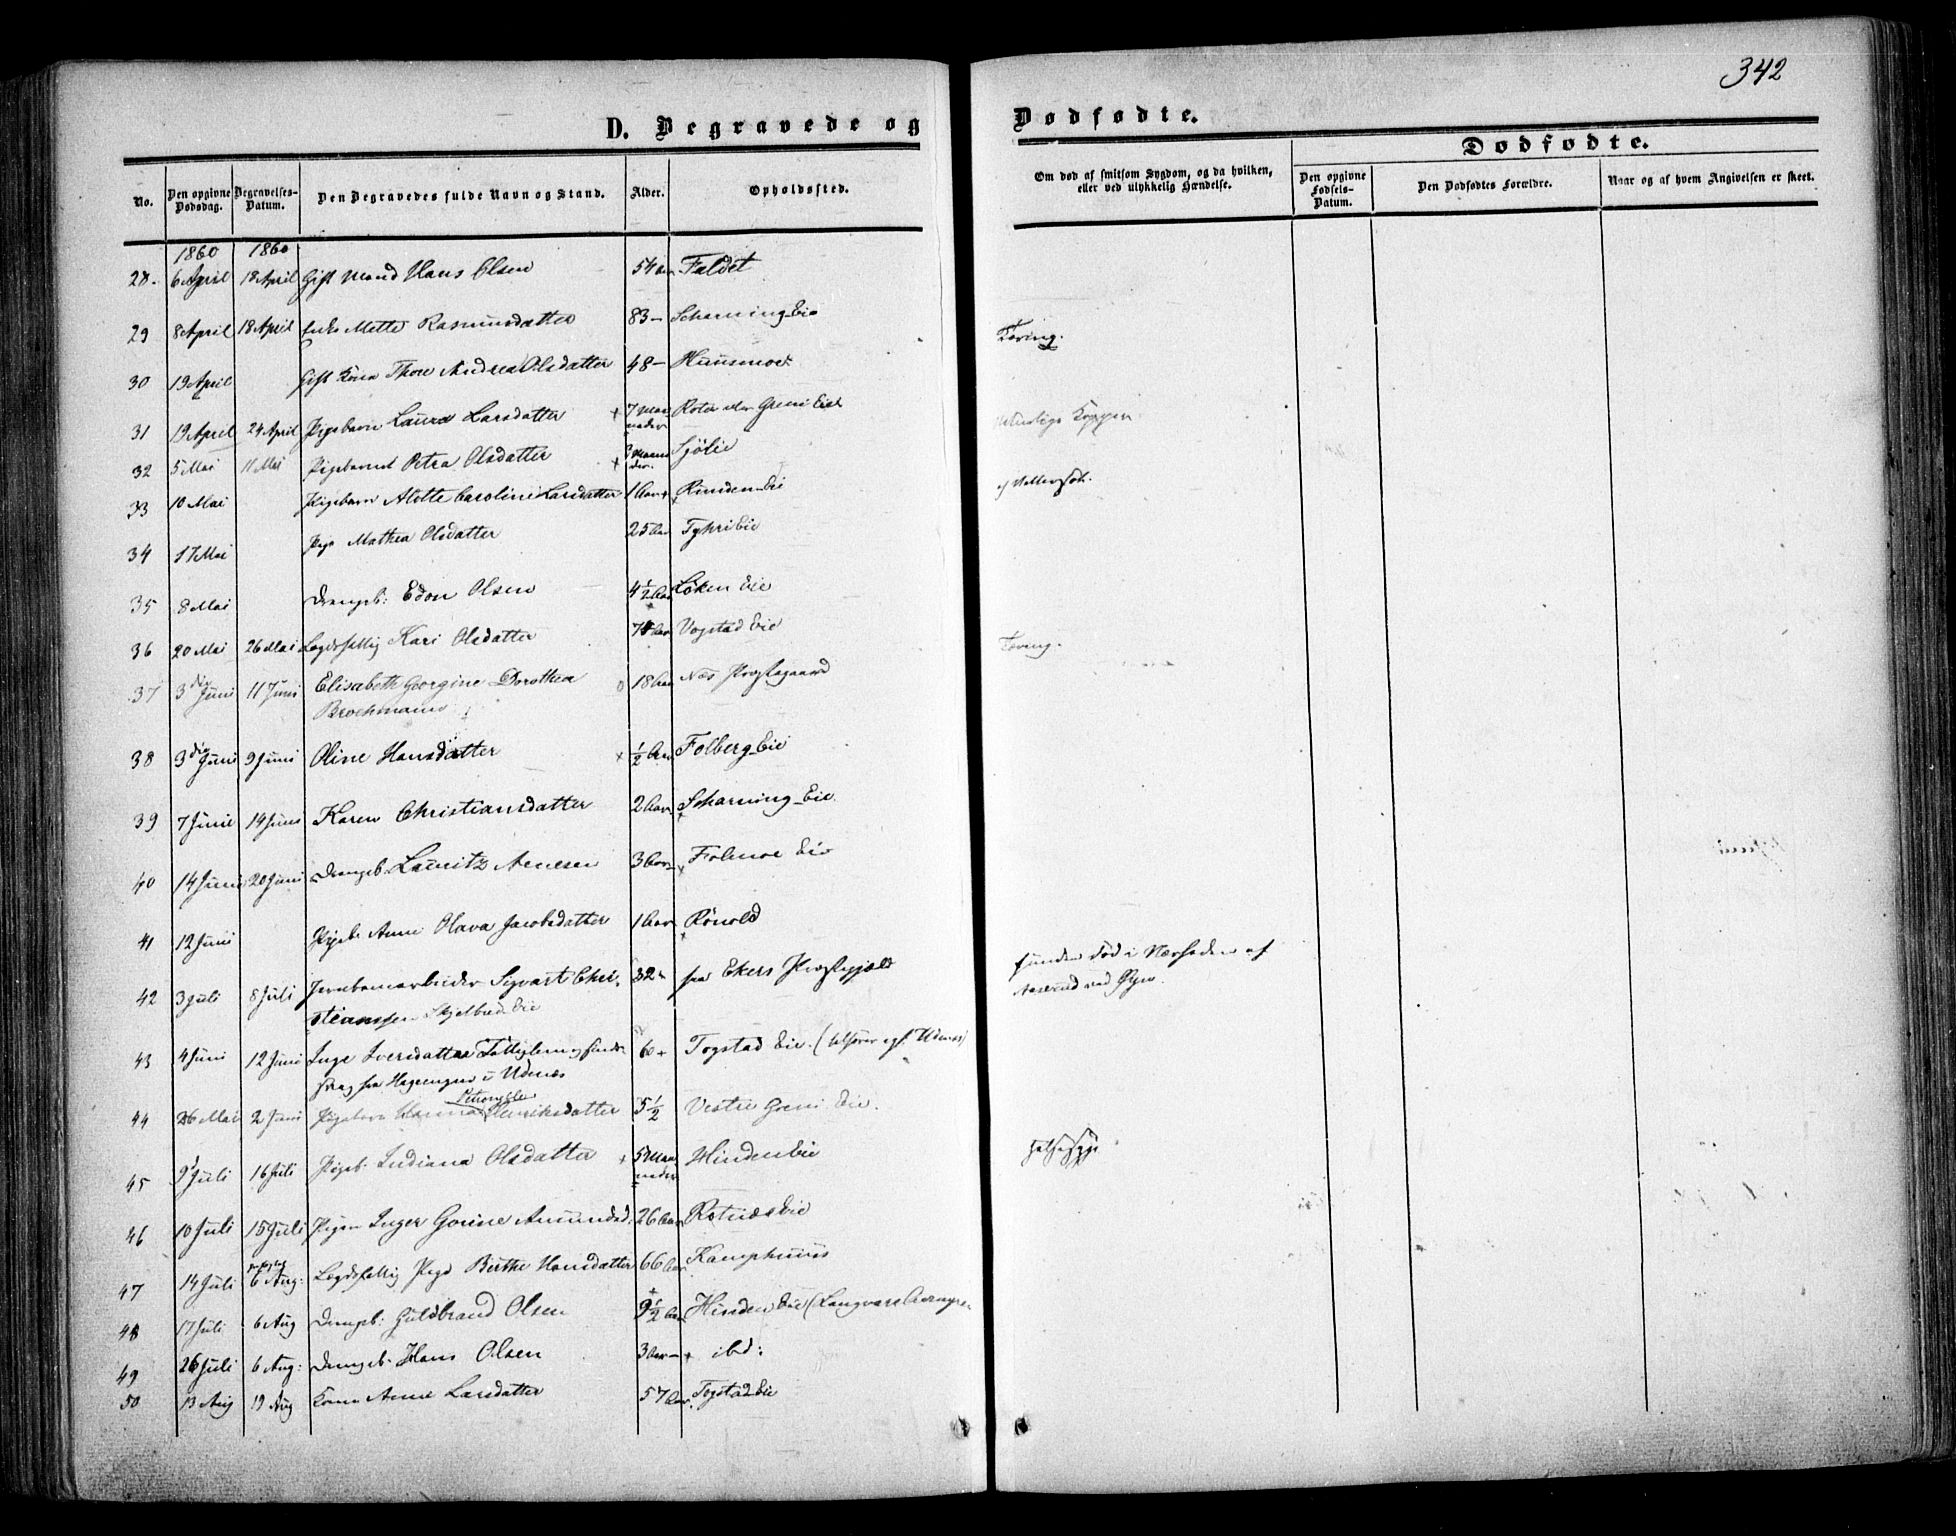 342
D. Begravede og Dødfødte.
Dødfødte.
No.
Den opgivne Dødsdag.
Begravelses-Datum.
Den Begravedes fulde Navn og Stand.
Alder.
Opholdssted.
Om død af smitsom Sygdom, og da hvilken, eller ved ulykkelig Hændelse.
Den opgivne Fødsels-Datum.
Den Dødfødtes Forældre.
Naar og af hvem Angivelsen er skeet.
1860 1860
28. 6 April 18 April Gift Mand Hans Olsen 54 Aar Faldet
29 8 April 18 April Enke Mette Rasmusdatter 83 - Scharning Eie Tæring.
30 19 April Gift Kone Thore Andrea Olsdatter 48 - Huusmoe
31 19 April 24 April Pigebarn Laura Larsdatter 7 Maaneder Greni Eie Kopper
32 5 Mai 11 Mai Pigebarnet Petra Olsdatter Sjölie
33 10 Mai Pigebarn Alette Caroline Larsdatter 1 Aar Runden Eie
34 17 Mai Pige Mathea Olsdatter 25 Aar Tyhri Eie
35 8 Mai Drengeb: Edon Olsen 4 1/2 Aar Löken Eie
36 20 Mai 26 Mai Lægdsfattig Kari Olsdatter Vogstad Eie Tæring.
37 3die Juni 11 Juni Elisabeth Georgine Dorothea 18 Aar Næs Præstegaard
Brochmann
38 3die Juni 9 Juni Oline Hansdatter 1/2 Aar Folberg Eie
39 7 Junie 14 Juni Karen Christiansdatter 2 Aar Scharning Eie.
40 14 Juni 20 Juni Drengeb. Lauritz Arnesen 3 Aar Folmoe Eie
41 12 Juni Pigeb. Anne Olava Jacobsdatter 1 Aar Rönold
42 3 Juli 8 Juli Jernbanearbeider Sigvart Chri- 32 fra Ekers Præstegjæld funden död i Nærheden af
stianssen Skjelbred Eie Aaserud ved
43 4 Juni 12 Juni Inge Iversdatter Fattiglem 60 Togstad Eie.
fra i Udenæs
44 26 Mai 2 Juni Pigebarn Hanna Petronelle Henriksdatter 5 1/2 Vestre Greni Eie.
45 9 Juli 16 Juli Pigeb. Indiana Olsdatter 5 Maaneder Hinden Eie Halssyge
46 10 Juli 15 Juli Pigen Inger Gorine Amundsd. 26 Aar Rotnæs Eie
47 14 Juli 6 Aug: Lægdsfattig Pige Birthe Hansdatter 66 Aar Kamphuus
48 17 Juli 6 Aug Drengeb: Guldbrand Olsen 9 1/2 Aar Hinden Eie
49 26 Juli 6 Aug: Drengeb. Hans Olsen 3 Aar - ibd:
50 13 Aug 19 Aug Kone Anne Larsdatter 57 Aar. Togstad Eie